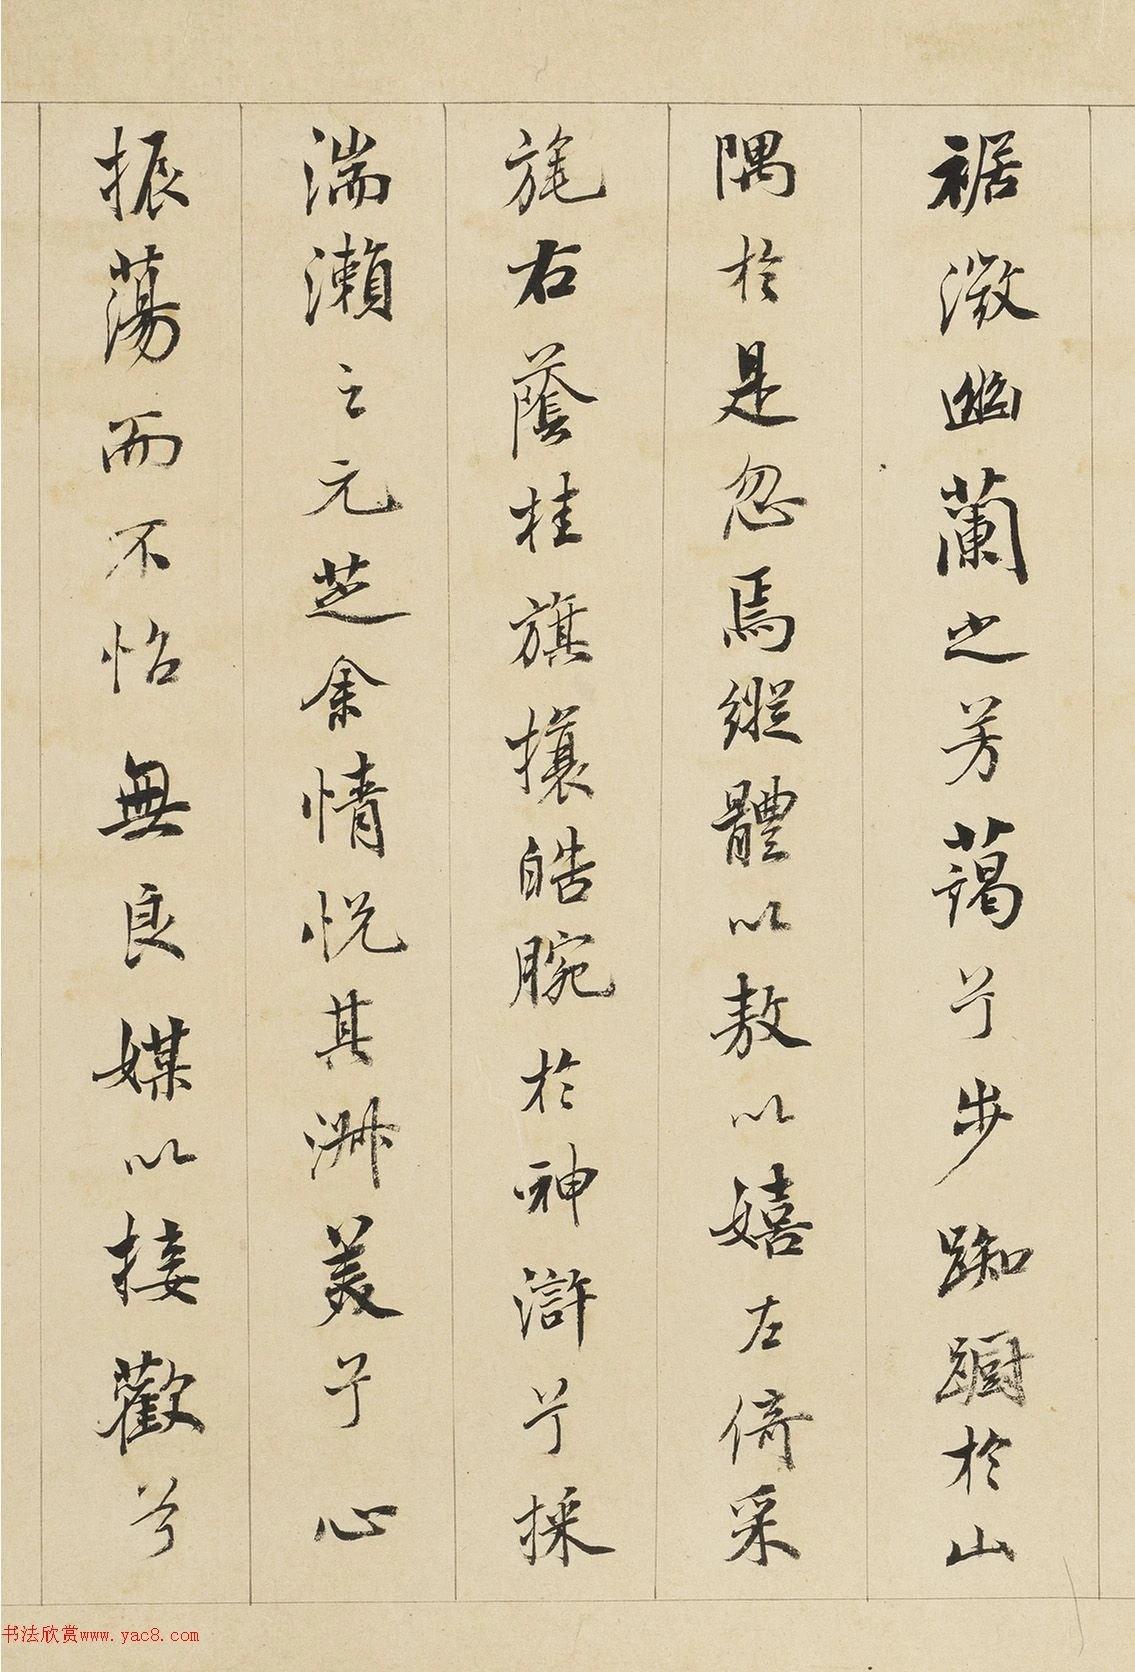 裾微幽蘭之芳藹兮步踟躕於山
隅於是忽焉縱體以敖以嬉左倚采
旄右蔭桂旗攘皓腕於神滸兮採
湍瀨之元芝余情悅其淑美兮心
振蕩而不怡無良媒以接歡兮
书法欣赏www.yac8.com